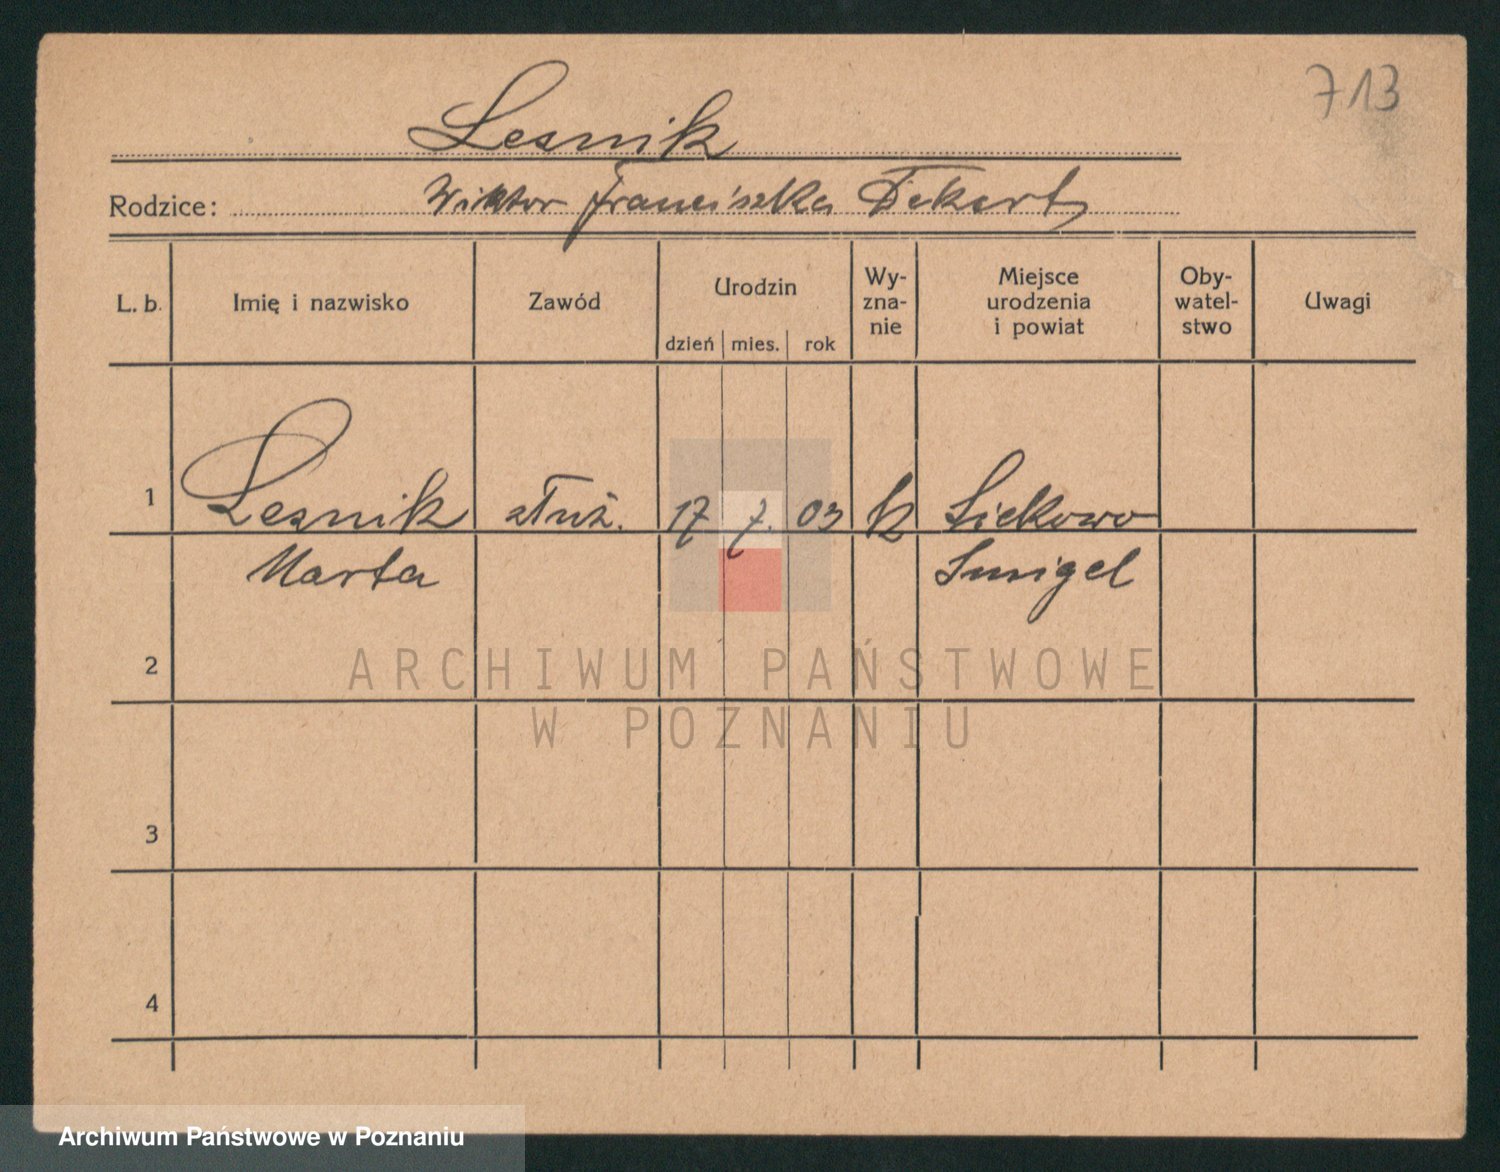 713
Lesnik
Rodzice: Wiktor Franciszka Dekert
L. b. Imię i nazwisko Zawód Urodzin dzień mies. rok Wy-zna-nie Miejsce urodzenia i powiat Oby-watel-stwo Uwagi
1 Lesnik służ. 17 7. 03 k Siekowo
Marta Smigel
2
3
4
ARCHIWUM PAŃSTWOWE
W POZNANIU
Archiwum Państwowe w Poznaniu